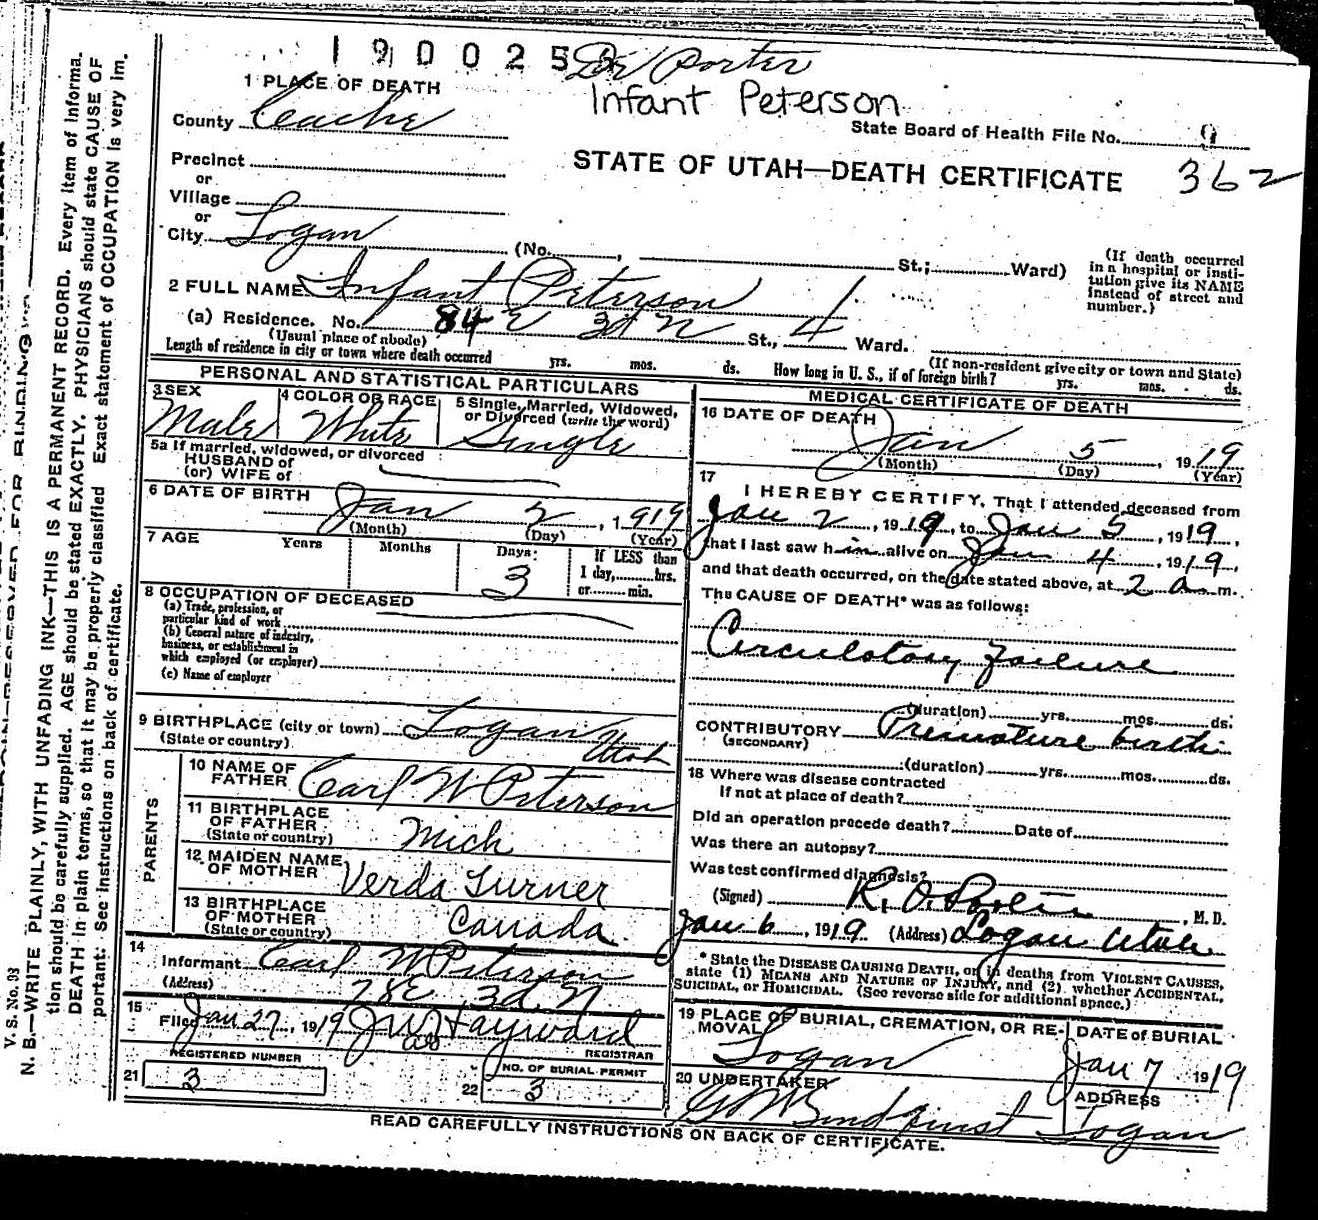 1900258
Dr Porter
Infant Peterson
1 PLACE OF DEATH
County Cache
State Board of Health File No. 9
362
STATE OF UTAH—DEATH CERTIFICATE
Precinct
or
Village
or
City Logan (No. , St.; Ward)
(If death occurred in a hospital or insti-
tution give its NAME
instead of street and
number.)
2 FULL NAME Infant Peterson
(a) Residence. No. 84 E 3d N St., 4 Ward.
(Usual place of abode) (If non-resident give city or town and State)
Length of residence in city or town where death occurred yrs. mos. ds. How long in U. S., if of foreign birth? yrs. mos. ds.
PERSONAL AND STATISTICAL PARTICULARS
3 SEX Male
4 COLOR OR RACE White
5 Single, Married, Widowed,
or Divorced (write the word)
Single
5a If married, widowed, or divorced
HUSBAND of
(or) WIFE of
6 DATE OF BIRTH
Jan 2, 1919
(Month) (Day) (Year)
7 AGE Years Months Days If LESS than
3 1 day, hrs.
or min.
8 OCCUPATION OF DECEASED
(a) Trade, profession, or
particular kind of work
(b) General nature of industry,
business, or establishment in
which employed (or employer)
(c) Name of employer
9 BIRTHPLACE (city or town) Logan
(State or country) Utah
PARENTS
10 NAME OF
FATHER Carl W Peterson
11 BIRTHPLACE
OF FATHER
(State or country) Mich
12 MAIDEN NAME
OF MOTHER Verda Turner
13 BIRTHPLACE
OF MOTHER
(State or country) Canada
14
Informant Carl W Peterson
(Address) 78 E 3d N
15
Filed Jan 27, 1919 J W Hayward
REGISTRAR
REGISTERED NUMBER
21 3
NO. OF BURIAL PERMIT
22 3
MEDICAL CERTIFICATE OF DEATH
16 DATE OF DEATH
Jan 5, 1919
(Month) (Day) (Year)
17
I HEREBY CERTIFY, That I attended deceased from
Jan 2, 1919, to Jan 5, 1919,
that I last saw him alive on Jan 4, 1919,
and that death occurred, on the date stated above, at 2 a m.
The CAUSE OF DEATH* was as follows:
Circulatory Failure
(duration) yrs. mos. ds.
CONTRIBUTORY Premature birth
(SECONDARY)
(duration) yrs. mos. ds.
18 Where was disease contracted
If not at place of death?
Did an operation precede death? Date of
Was there an autopsy?
Was test confirmed diagnosis?
(Signed) R. O. Porter, M. D.
Jan 6, 1919 (Address) Logan Utah
* State the DISEASE CAUSING DEATH, or in deaths from VIOLENT CAUSES,
state (1) MEANS AND NATURE OF INJURY, and (2) whether ACCIDENTAL,
SUICIDAL, or HOMICIDAL. (See reverse side for additional space.)
19 PLACE OF BURIAL, CREMATION, OR RE-
MOVAL
Logan
DATE of BURIAL
Jan 7 1919
20 UNDERTAKER
ADDRESS
Logan
READ CAREFULLY INSTRUCTIONS ON BACK OF CERTIFICATE.
V. S. No. 93
N. B.—WRITE PLAINLY, WITH UNFADING INK—THIS IS A PERMANENT RECORD. Every item of informa-
tion should be carefully supplied. AGE should be stated EXACTLY. PHYSICIANS should state CAUSE OF
DEATH in plain terms, so that it may be properly classified. Exact statement of OCCUPATION is very im-
portant. See instructions on back of certificate.